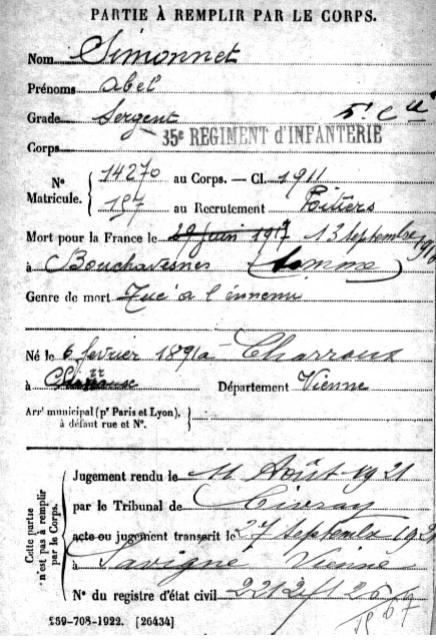 PARTIE À REMPLIR PAR LE CORPS.
Nom Simonnet
Prénoms Abel
Grade Sergent 5e Cie
Corps 35e REGIMENT d'INFANTERIE
N° Matricule. 14270 au Corps. — Cl. 1911
197 au Recrutement Poitiers
Mort pour la France le 29 juin 1917 13 septembre 1916
à Bouchavesnes (Somme)
Genre de mort Tué à l'ennemi
Né le 6 février 1891 à Charroux
à Département Vienne
Arrt municipal (pr Paris et Lyon),
à défaut rue et N°.
Cette partie n'est pas à remplir par le Corps.
Jugement rendu le 11 Août 1921
par le Tribunal de Civray
acte ou jugement transcrit le 27 septembre 1921
à Savigné Vienne
N° du registre d'état civil
259-708-1922. [26434]